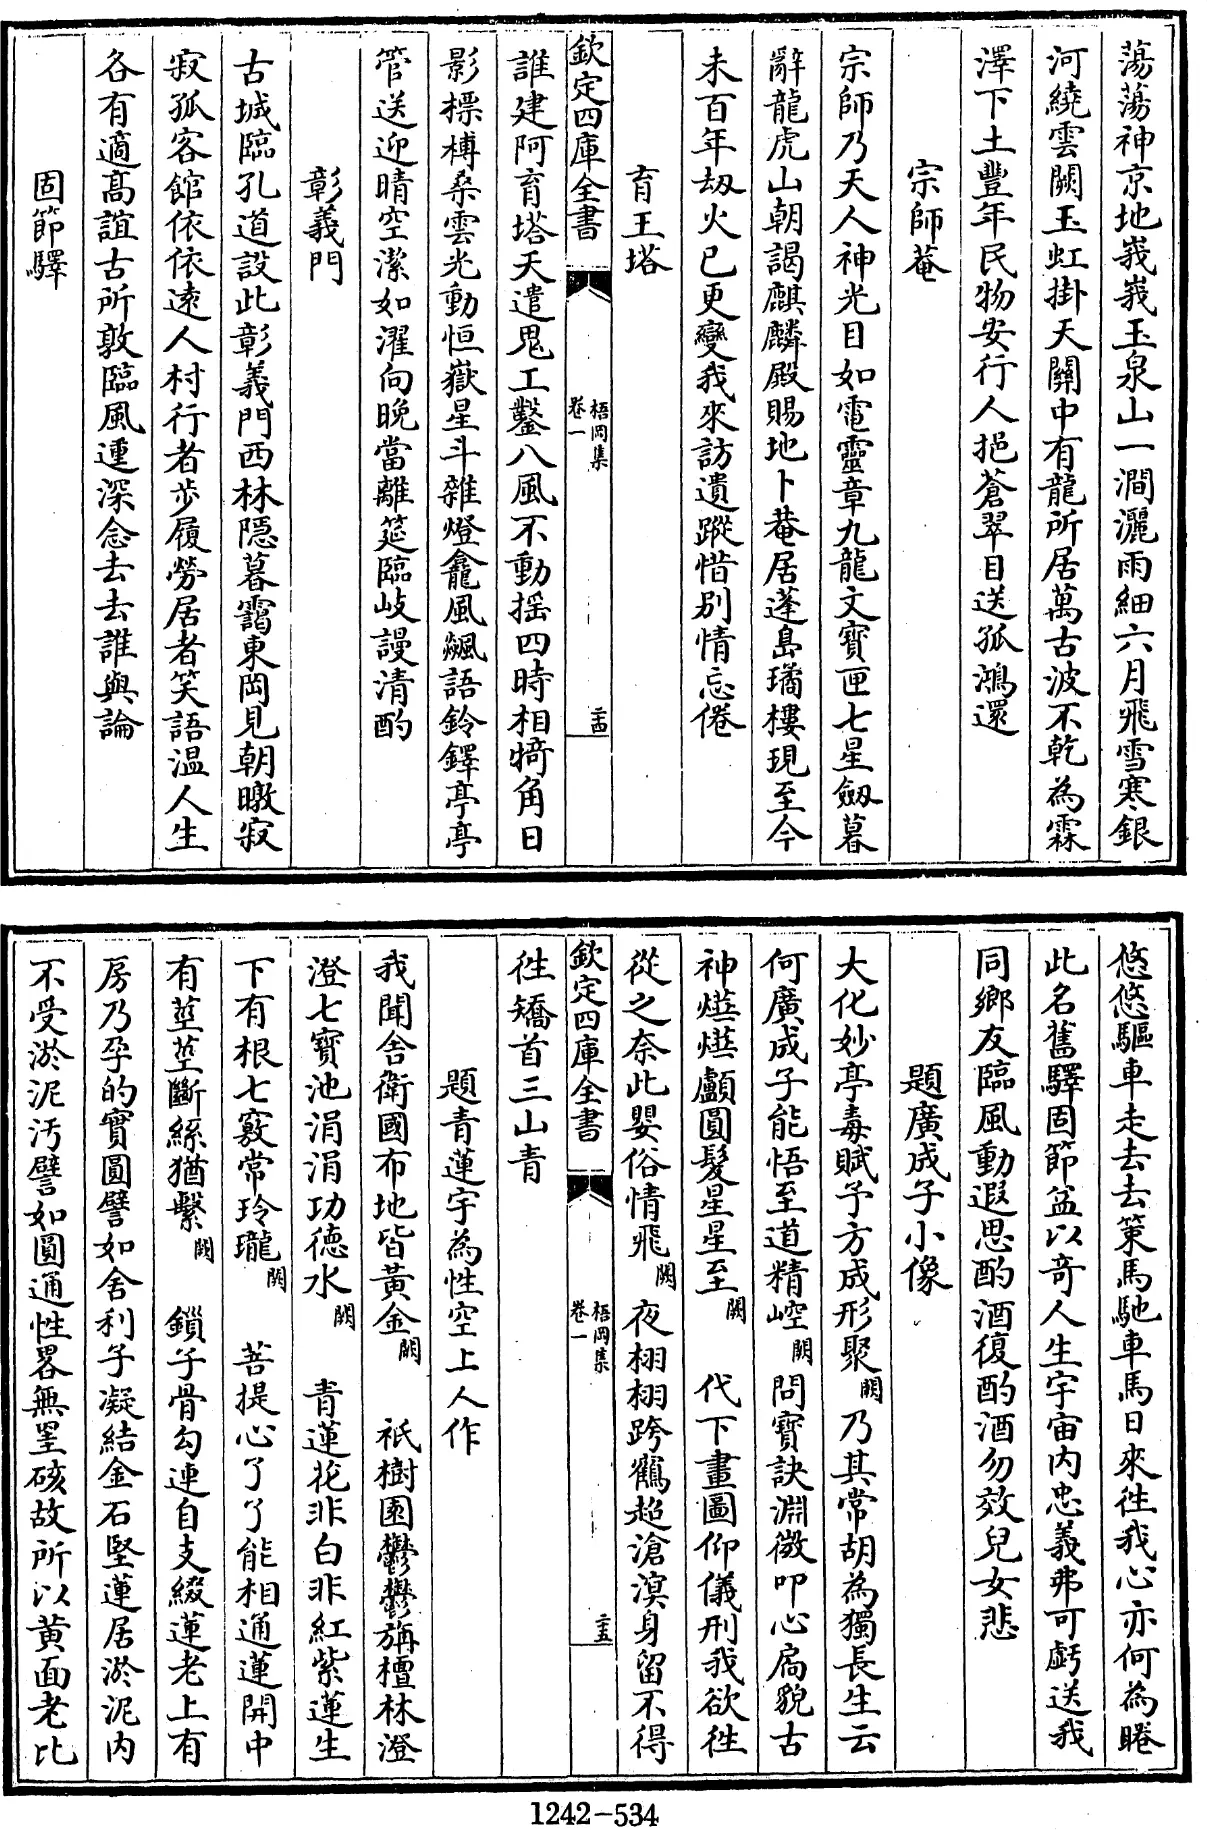 蕩蕩神京地峩峩玉泉山一澗灑雨細六月飛雪寒銀
河繞雲闕玉虹掛天關中有龍所居萬古波不乾為霖
澤下土豐年民物安行人挹蒼翠目送孤鴻還
宗師菴
宗師乃天人神光目如電靈章九龍文寶匣七星劔暮
辭龍虎山朝謁麒麟殿賜地卜菴居蓬島璚樓現至今
未百年刼火已更變我來訪遺蹤惜别情忘倦
育王塔
欽定四庫全書
梧岡集
卷一
二十四
誰建阿育塔天遣鬼工鑿八風不動揺四時相犄角日
影標榑桑雲光動恒嶽星斗雜燈龕風颿語鈴鐸亭亭
管送迎晴空潔如濯向晚當離筵臨岐謾清酌
彰義門
古城臨孔道設此彰義門西林隠暮靄東岡見朝暾寂
寂孤客館依依逺人村行者步履勞居者笑語温人生
各有適髙誼古所敦臨風重深念去去誰與論
固節驛
悠悠驅車走去去策馬馳車馬日來徃我心亦何為睠
此名舊驛固節盆以奇人生宇宙内忠義弗可虧送我
同鄉友臨風動遐思酌酒復酌酒勿效兒女悲
題廣成子小像
大化妙亭毒賦予方成形聚闕乃其常胡為獨長生云
何廣成子能悟至道精崆闕 問寶訣淵微叩心扃貌古
神燁燁顱圓髮星星至闕 代下畫圖仰儀刑我欲徃
從之奈此嬰俗情飛闕 夜栩栩跨鶴超滄溟身留不得
欽定四庫全書
梧岡集
卷一
二十五
徃矯首三山青
題青蓮宇為性空上人作
我聞舍衛國布地皆黄金闕 祇樹園鬱鬱旃檀林澄
澄七寶池涓涓功徳水闕 青蓮花非白非紅紫蓮生
下有根七竅常玲瓏闕 菩提心了了能相通蓮開中
有莖莖斷絲猶繫闕 鎻子骨勾連自支綴蓮老上有
房乃孕的實圓譬如舍利子凝結金石堅蓮居淤泥内
不受淤泥汚譬如圓通性畧無罣硋故所以黄面老比
1242-534